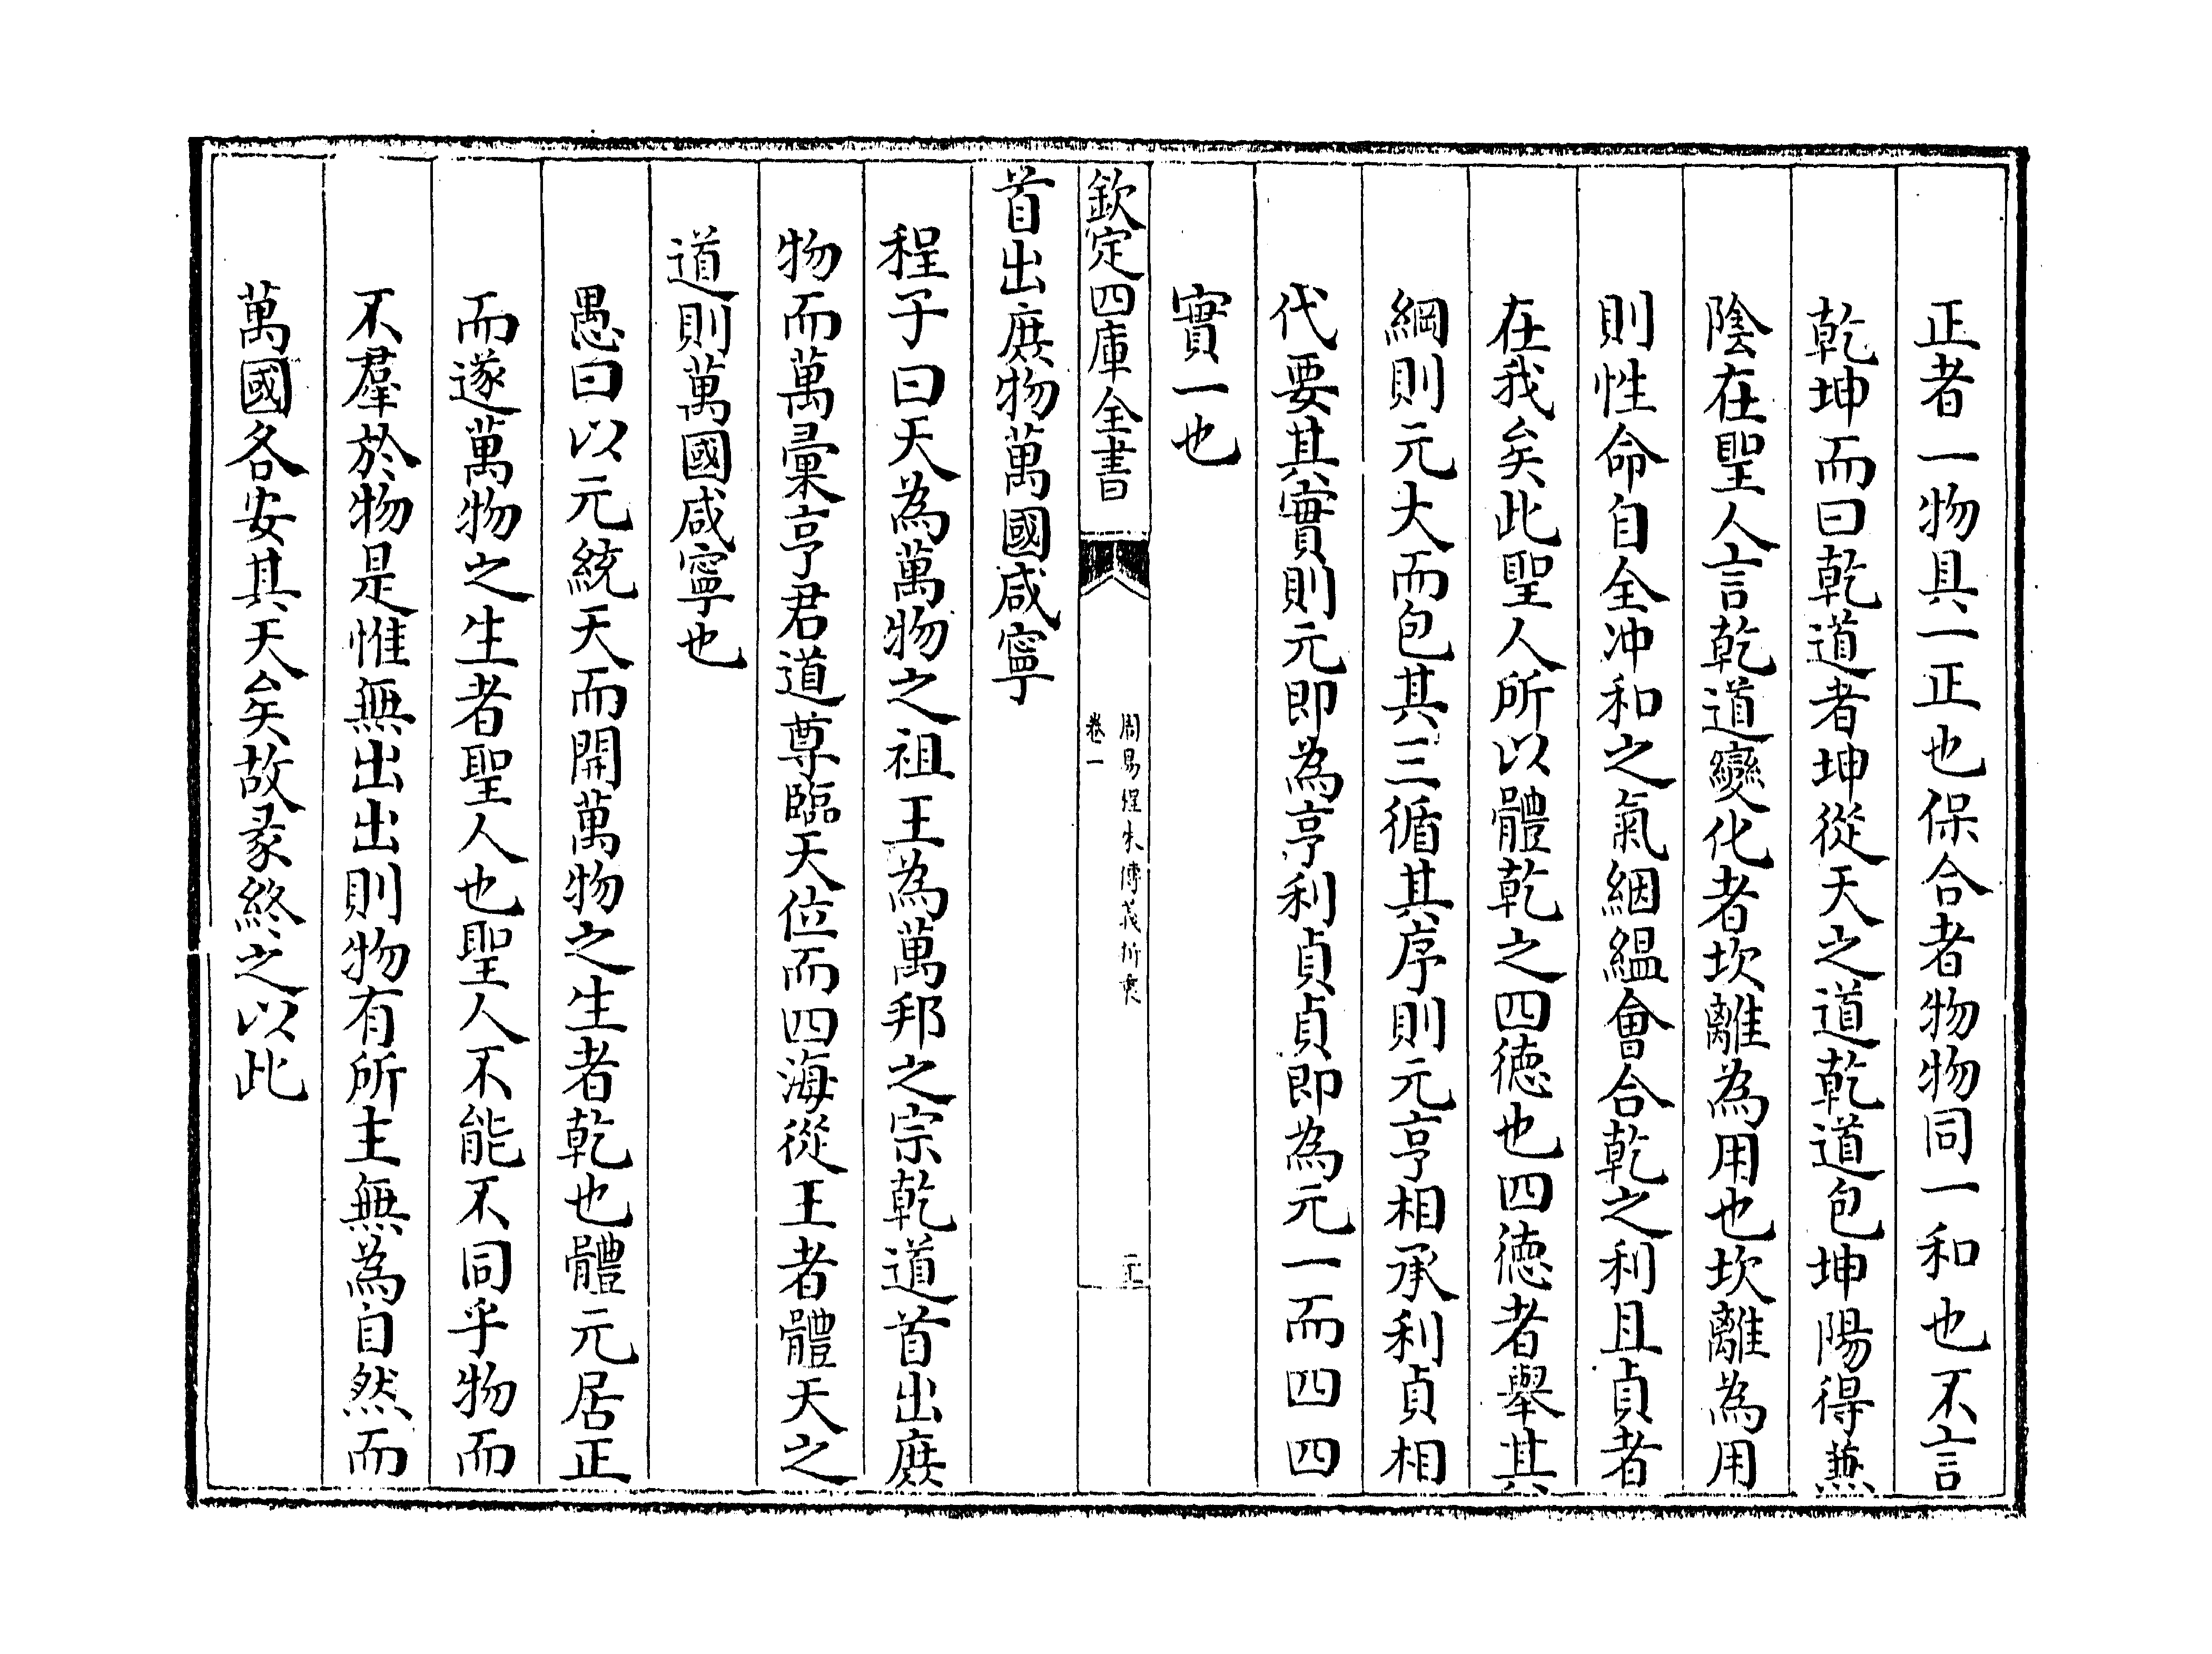 正者一物具一正也保合者物物同一和也不言
乾坤而曰乾道者坤從天之道乾道包坤陽得兼
陰在聖人言乾道變化者坎離為用也坎離為用
則性命自全冲和之氣絪緼會合乾之利且貞者
在我矣此聖人所以體乾之四徳也四徳者舉其
綱則元大而包其三循其序則元亨相承利貞相
代要其實則元即為亨利貞貞即為元一而四四
實一也
欽定四庫全書
周易程朱傳義折衷
卷一
首出庶物萬國咸寧
程子曰天為萬物之祖王為萬邦之宗乾道首出庶
物而萬彚亨君道尊臨天位而四海從王者體天之
道則萬國咸寧也
愚曰以元統天而開萬物之生者乾也體元居正
而遂萬物之生者聖人也聖人不能不同乎物而
不羣於物是惟無出出則物有所主無為自然而
萬國各安其天矣故彖終之以此